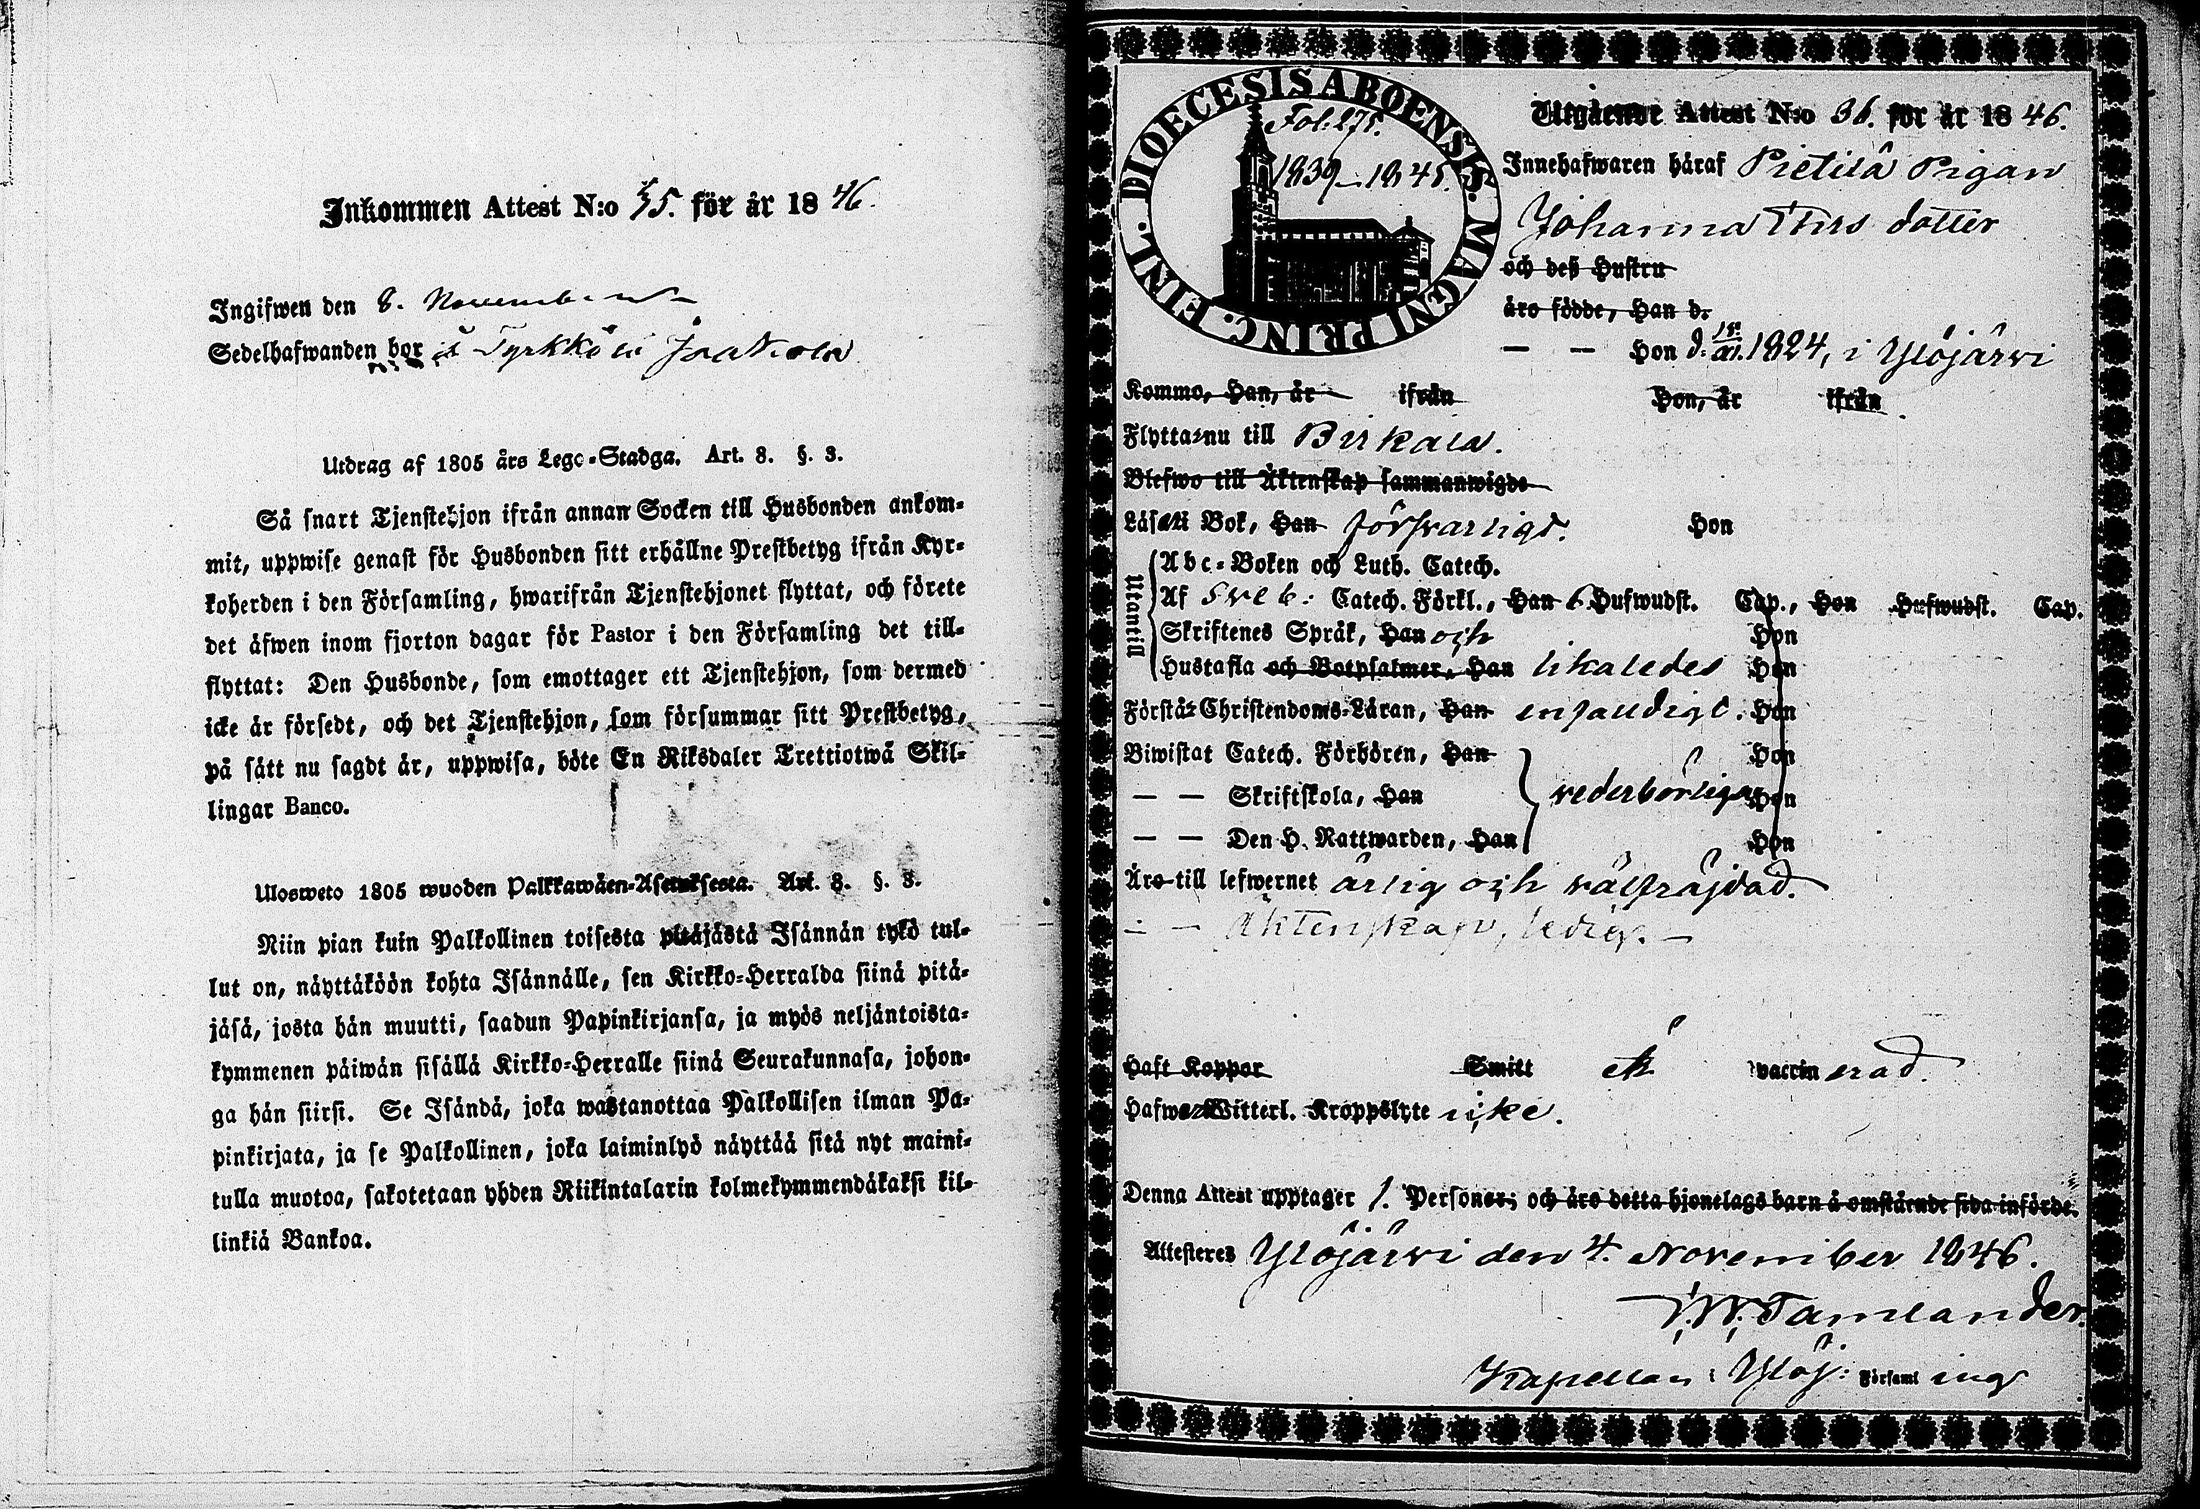 Inkommen Attest N:o 55. för år 1846.
Ingifwen den 8. November
Sedelhafwanden bor i Tyrkkölä Jaakola
Utdrag af 1805 års Lego-Stadga. Art. 8. §. 3.
Så snart Tjenstehjon ifrån annan Socken till Husbonden ankom-
mit, uppwise genast för Husbonden sitt erhållne Prestbetyg ifrån Kyr-
koherden i den Församling, hwarifrån Tjenstehjonet flyttat, och förete
det äfwen inom fjorton dagar för Pastor i den Församling det till-
flyttat: Den Husbonde, som emottager ett Tjenstehjon, som dermed
icke är försedt, och det Tjenstehjon, som försummar sitt Prestbetyg,
på sätt nu sagdt är, uppwisa, böte En Riksdaler Trettiotwå Skil-
lingar Banco.
Ulosweto 1805 wuoden Palkkawäen-Asetuksesta. Art. 8. §. 3.
Niin pian kuin Palkollinen toisesta pitäjästä Isännän tykö tul-
lut on, näyttäköön kohta Isännälle, sen Kirkko-Herralda siinä pitä-
jäsä, josta hän muutti, saadun Papinkirjansa, ja myös neljäntoista-
kymmenen päiwän sisällä Kirkko-Herralle siinä Seurakunnasa, johon-
ga hän siirsi. Se Isändä, joka wastanottaa Palkollisen ilman Pa-
pinkirjata, ja se Palkollinen, joka laiminlyö näyttää sitä nyt maini-
tulla muotoa, sakotetaan yhden Riikintalarin kolmekymmendäkaksi kil-
linkiä Bankoa.
DIOECESIS ABOENSIS. MAGNI PRINC. FINL.
Fol: 275.
1839–1845.
Utgående Attest N:o 36. för år 1846.
Innehafwaren häraf Pietilä Pigan
Johanna Thrs dotter
och deß Hustru
äro födde, Han d.
— — Hon d: 1824, i Ylöjärvi
Kommo, Han, år ifrån Hon, år ifrån
Flytta nu till Birkala.
Blefwo till Äktenskap sammanwigde
Läsa i Bok, Han försvarligt. Hon
Utantill
Abc-Boken och Luth. Catech.
Af Sveb: Catech. Förkl., Han 6 Hufwudst. Cap., Hon Hufwudst. Cap.
Skriftenes Språk, Han och Hon
Hustafla och Botpsalmer, Han likaledes Hon
Förstå Christendoms-Läran, Han enfaldigt. Hon
Biwistat Catech. Förhören, Han Hon
— — Skriftskola, Han vederbörligen Hon
— — Den H. Nattwarden, Han Hon
Äro till lefwernet ärlig och välfräjdad.
— — Äktenskap, ledig. —
Haft Koppor Smitt är vaccinerad.
Hafwa Witterl. Kroppslyte icke.
Denna Attest upptager 1. Personer; och äro detta hjonelags barn å omstående sida införde.
Attesteres Ylöjärvi den 4. November 1846.
Tamlander.
Kapellan i Ylöj: Församling